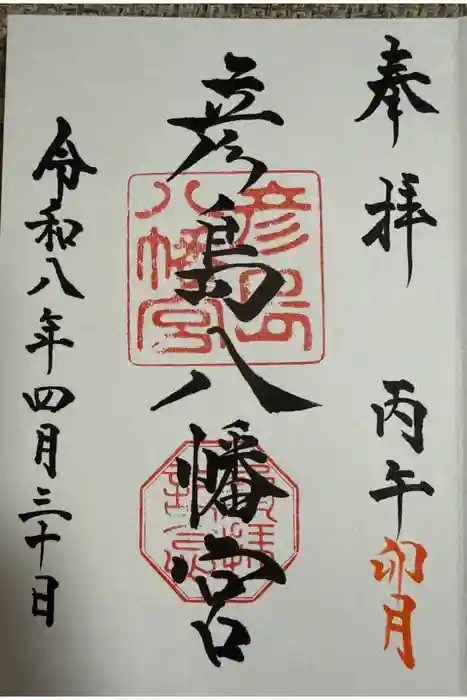 奉拝
丙午 卯月
彦島八幡宮
彦島八幡宮
令和八年四月三十日